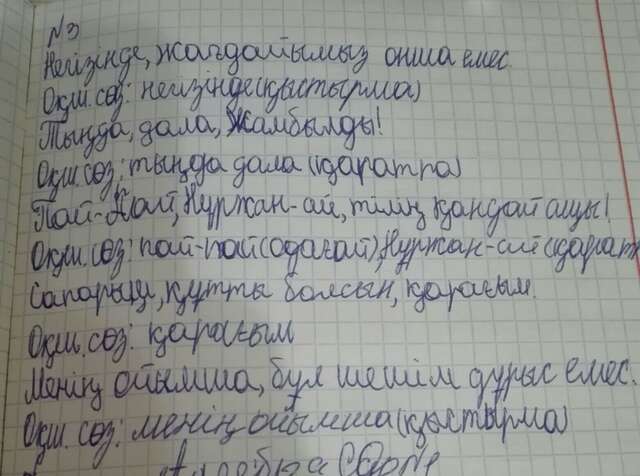 №3
Негізінде, жағдайымыз онша емес.
Оқш. сөз: негізінде(қыстырма)
Тыңда, дала, Жамбылды!
Оқш. сөз: тыңда дала (қаратпа)
Пай-пай, Нұржан-ай, тілің қандай ащы!
Оқш. сөз: пай-пай(одағай), Нұржан-ай(қарат
Сапарың, құтты болсын, қарағым.
Оқш. сөз: қарағым
Менің ойымша, бұл шешім дұрыс емес.
Оқш. сөз: менің ойымша(қыстырма)